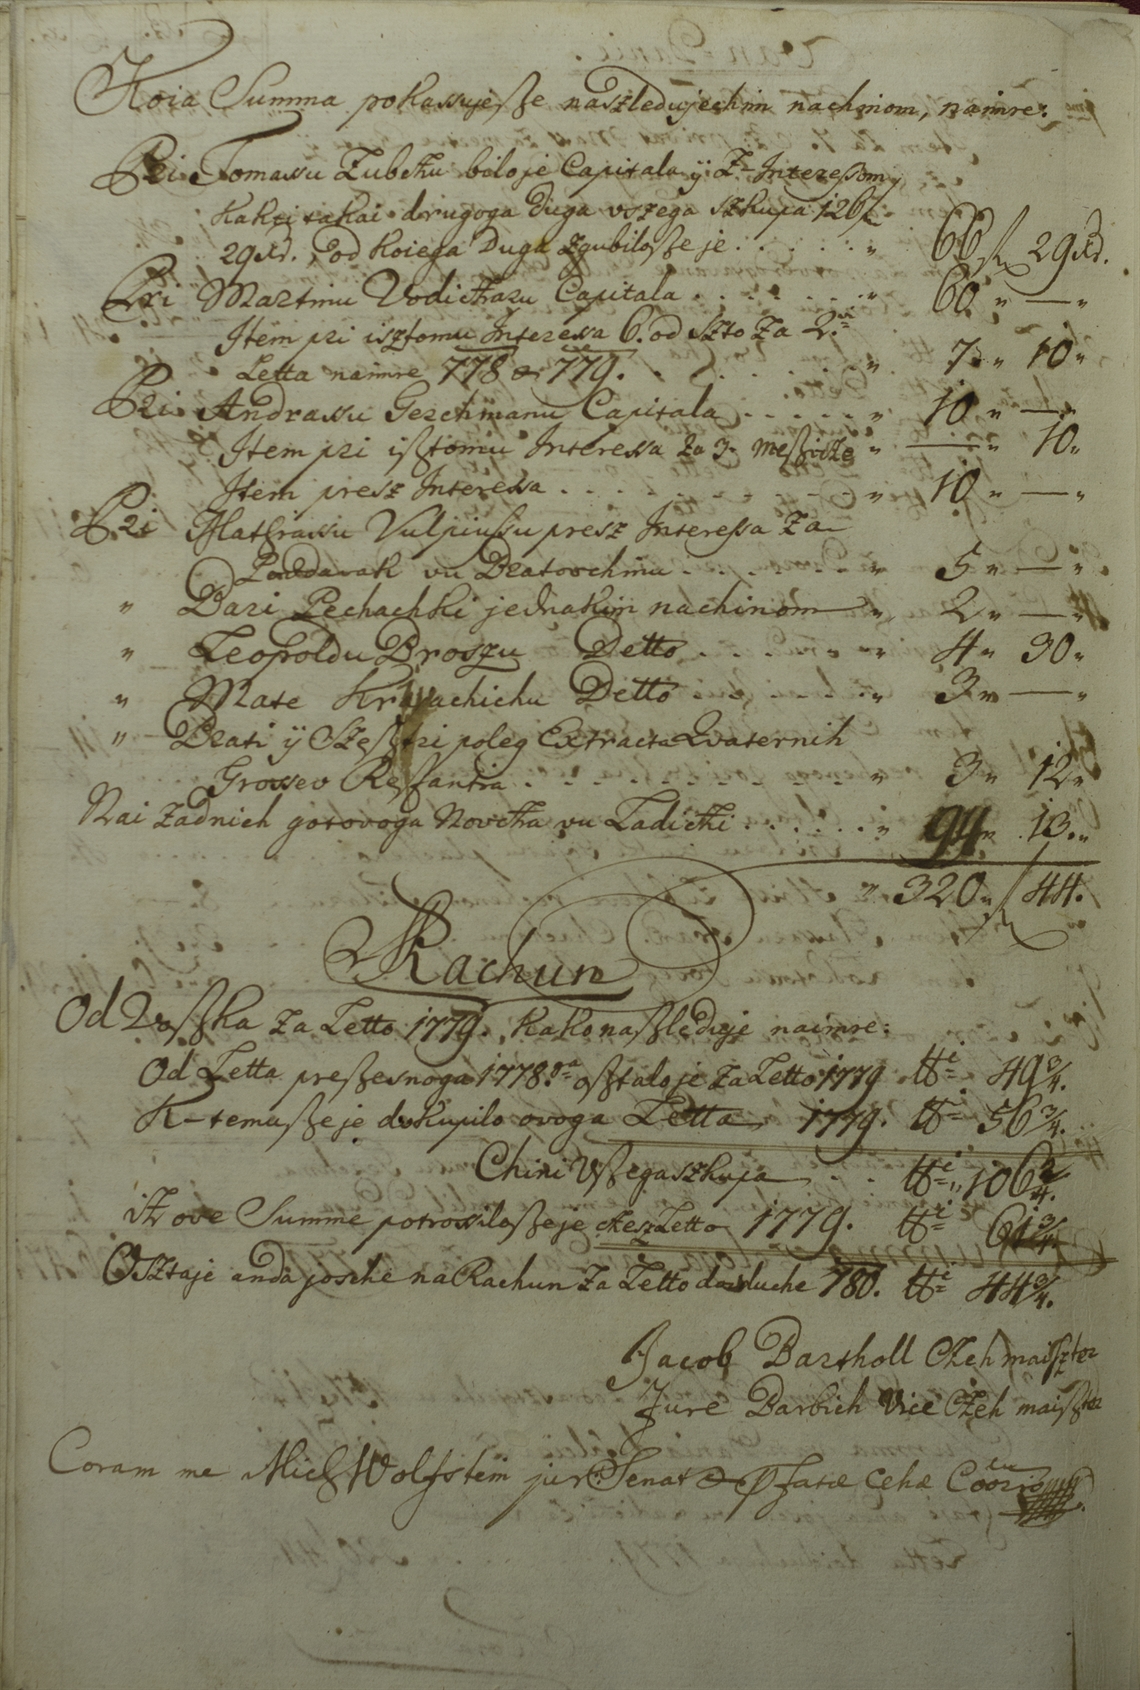 Koia Summa pokassujesse naszledujechim nachinom, naimre:
Pri Tomassu Zubchu bilo je Capitala ÿ Z-Interessom,
kak ti takai drugoga Duga vszega szkupa 126 f
29 xd. od koiega Duga zgubilosse je . . . . . „ 66 f 29 xd.
Pri Martinu Vodichkaru Capitala . . . . . . . „ 60 „ — „
Item pri isztomu Interessa 6. od szto za 2.
Letta naimre 778 & 779. . . . . . . „ 7 „ 10 „
Pri Andrassu Gerchmanu Capitala . . . . . „ 10 „ — „
Item pri isztomu Interessa za 3. meszicze „ — „ 10 „
Item presz Interessa . . . . . . . . . „ 10 „ — „
Pri Mathiassu Vulpiussu presz Interessa za
Poddavak vu Bratovchinu . . . . . . . „ 5 „ — „
„ Bari Pechachki jednakim nachinom „ 2 „ — „
„ Leopoldu Broszu Detto . . . . . . „ 4 „ 30 „
„ Mate Krivachichu Detto . . . . . . „ 3 „ — „
„ Brati ÿ Szesztri poleg Extracta Quaternih
Grossev Restantia . . . . . . . . . . „ 3 „ 12 „
Nai zadnich gotovoga Novcha vu Ladichi . . . . . . „ 94 „ 13 „
„ 320 „ f 44.
Rachun
Od Voszka za Letto 1779. kako naszleduje naimre:
Od Letta pressesnoga 1778.ga osztalo je za Letto 1779 ℔ 49 3/4.
K-temusse je dokupilo ovoga Letta 1779. ℔ 56 3/4.
Chini Vszega szkupa . . ℔ „ 106 2/4.
iz ove Summe potrossilosse je chez Letto 1779. ℔ 61 3/4
Osztaje anda josche na Rachun za Letto dojduche 780. ℔ 44 3/4.
Jacob Bartholl Czeh maiszter
Jure Barbich Vice Czeh maiszter
Coram me Mich Wolfstein jur. Senat &